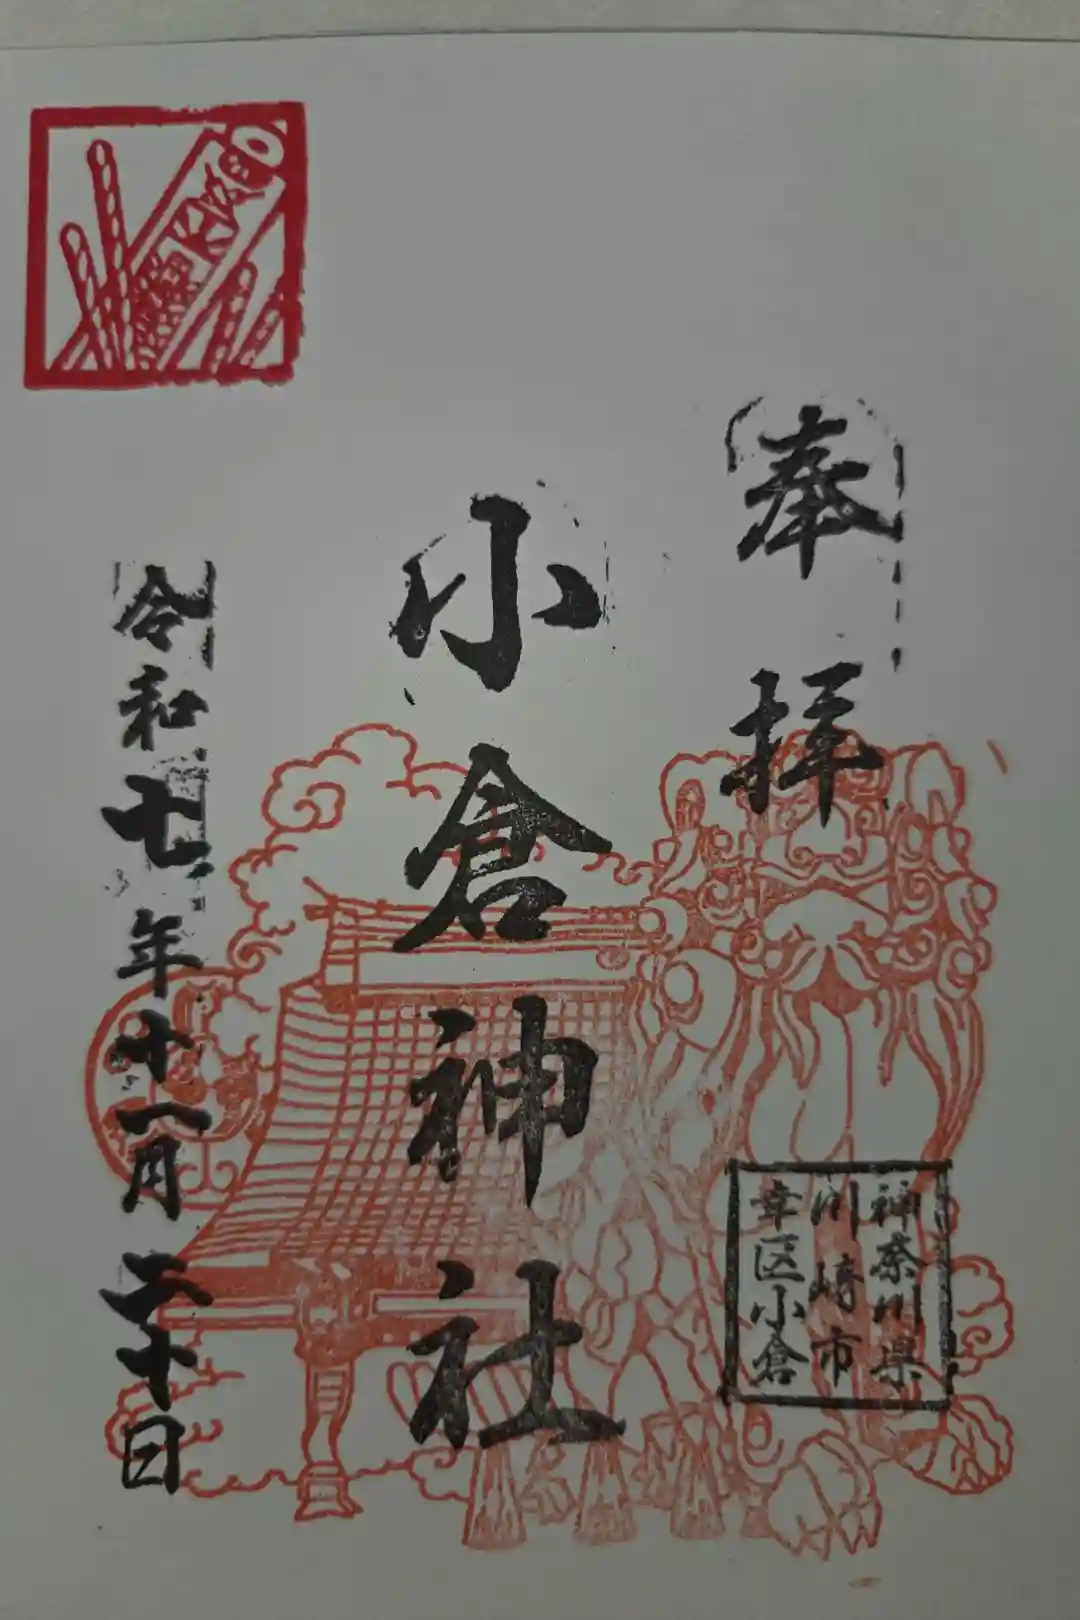 奉拝
小倉神社
令和七年十一月二十日
神奈川県
川崎市
幸区小倉